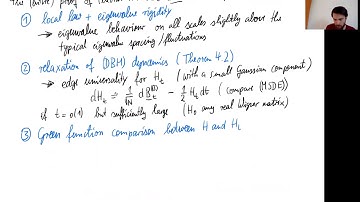 The (…) proof of
① local law + eigenvalue rigidity
→ eigenvalue behaviour on all scales slightly above the
typical eigenvalue spacing/fluctuations
② relaxation of DBM dynamics (Theorem 4.2)
→ edge universality for H_t (with a small Gaussian component)
dH_t = 1/√N dB_t - 1/2 H_t dt (compare (MSDE))
if t = o(1) but sufficiently large (H_0 any real Wigner matrix)
③ Green function comparison between H and H_t